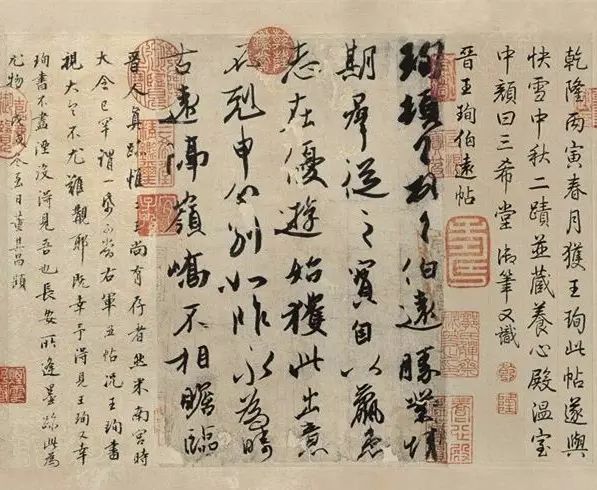 乾隆丙寅春月獲王珣此帖遂與
快雪中秋二蹟並藏養心殿溫室
中顏曰三希堂御筆又識
晉王珣伯遠帖
珣頓首頓首伯遠勝業情
期群從之寶自以羸患
志在優遊始獲此出意
不剋申分別如昨永為疇
古遠隔嶺嶠不相瞻臨
晉人真跡惟二王尚有存者然米南宮時
大令已罕謂一紙可當右軍五帖況王珣書
視大令不尤難覯耶既幸予得見王珣又幸
珣書不盡湮沒得見吾也長安所逢墨跡此為
尤物戊戌冬至日董其昌題